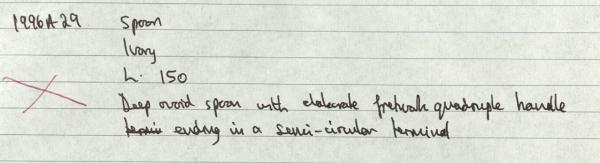 1996A29 Spoon
Ivory
L. 150
Deep ovoid spoon with elaborate fretwork quadruple handle
termin ending in a semi-circular terminal